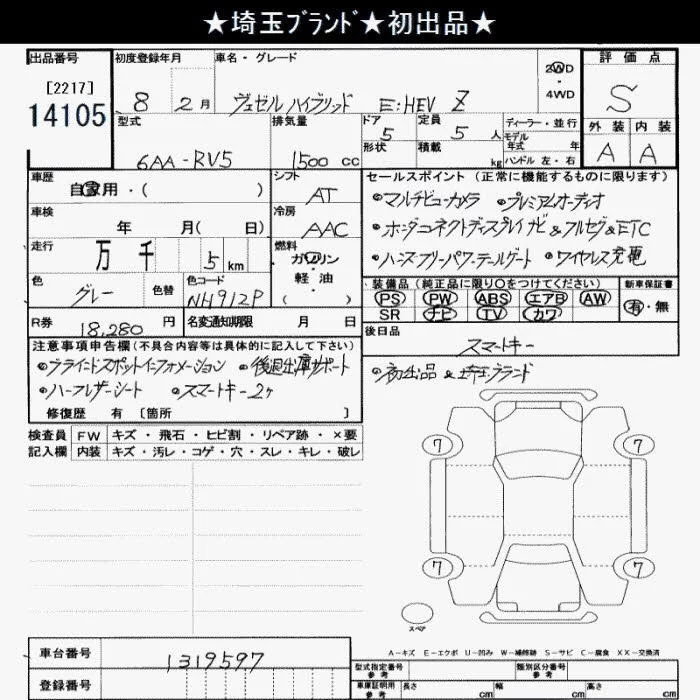 ★埼玉ﾌﾞﾗﾝﾄﾞ★初出品★
出品番号 初度登録年月 車名・グレード 評価点
[2217]
14105
8 2月 ヴェゼル ハイブリッド E:HEV Z
2WD
・
4WD
S
型式 排気量 ドア 定員 ディーラー・並行 外装 内装
6AA-RV5 1500 cc 5 5 人 モデル年式 年 A A
形状 積載 kg ハンドル 左・右
車歴 自家用・( ) シフト AT
セールスポイント (正常に機能するものに限ります)
車検 年 月( 日) 冷房 AAC
•マルチビューカメラ •プレミアムオーディオ
•ホンダコネクトディスプレイナビ&フルセグ&ETC
•ハンズフリーパワーテールゲート •ワイヤレス充電
走行 万 千 5 km 燃料 ガソリン・軽油 ( )
色 グレー 色替 色コード NH912P
装備品(純正品に限り○をつけてください) 新車保証書
PS PW ABS エアB AW 有・無
SR ナビ TV カワ
R券 18,280 円 名変通知期限 月 日
後日品 スマートキー
注意事項申告欄(不具合内容等は具体的に記入して下さい)
•ブラインドスポットインフォメーション •後退出庫サポート
•ハーフレザーシート •スマートキー2ヶ
修復歴 有 [箇所 ]
•初出品&埼玉ブランド
検査員記入欄 FW キズ・飛石・ヒビ割・リペア跡・×要
内装 キズ・汚レ・コゲ・穴・スレ・キレ・破レ
7 7
7 7
スペア
A-キズ E-エクボ U-凹み W-補修跡 S-サビ C-腐食 XX-交換済
車台番号 1319597
登録番号
型式指定番号 参考 類別区分番号 参考
車庫証明用 参考 長さ cm 幅 cm 高さ cm